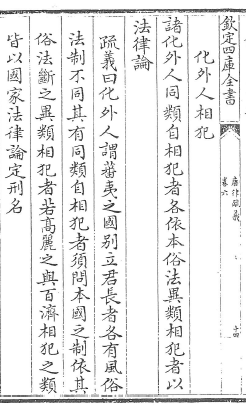 欽定四庫全書
唐律疏義
卷六
十四
化外人相犯
諸化外人同類自相犯者各依本俗法異類相犯者以
法律論
疏義曰化外人謂蕃夷之國别立君長者各有風俗
法制不同其有同類自相犯者須問本國之制依其
俗法斷之異類相犯者若高麗之與百濟相犯之類
皆以國家法律論定刑名